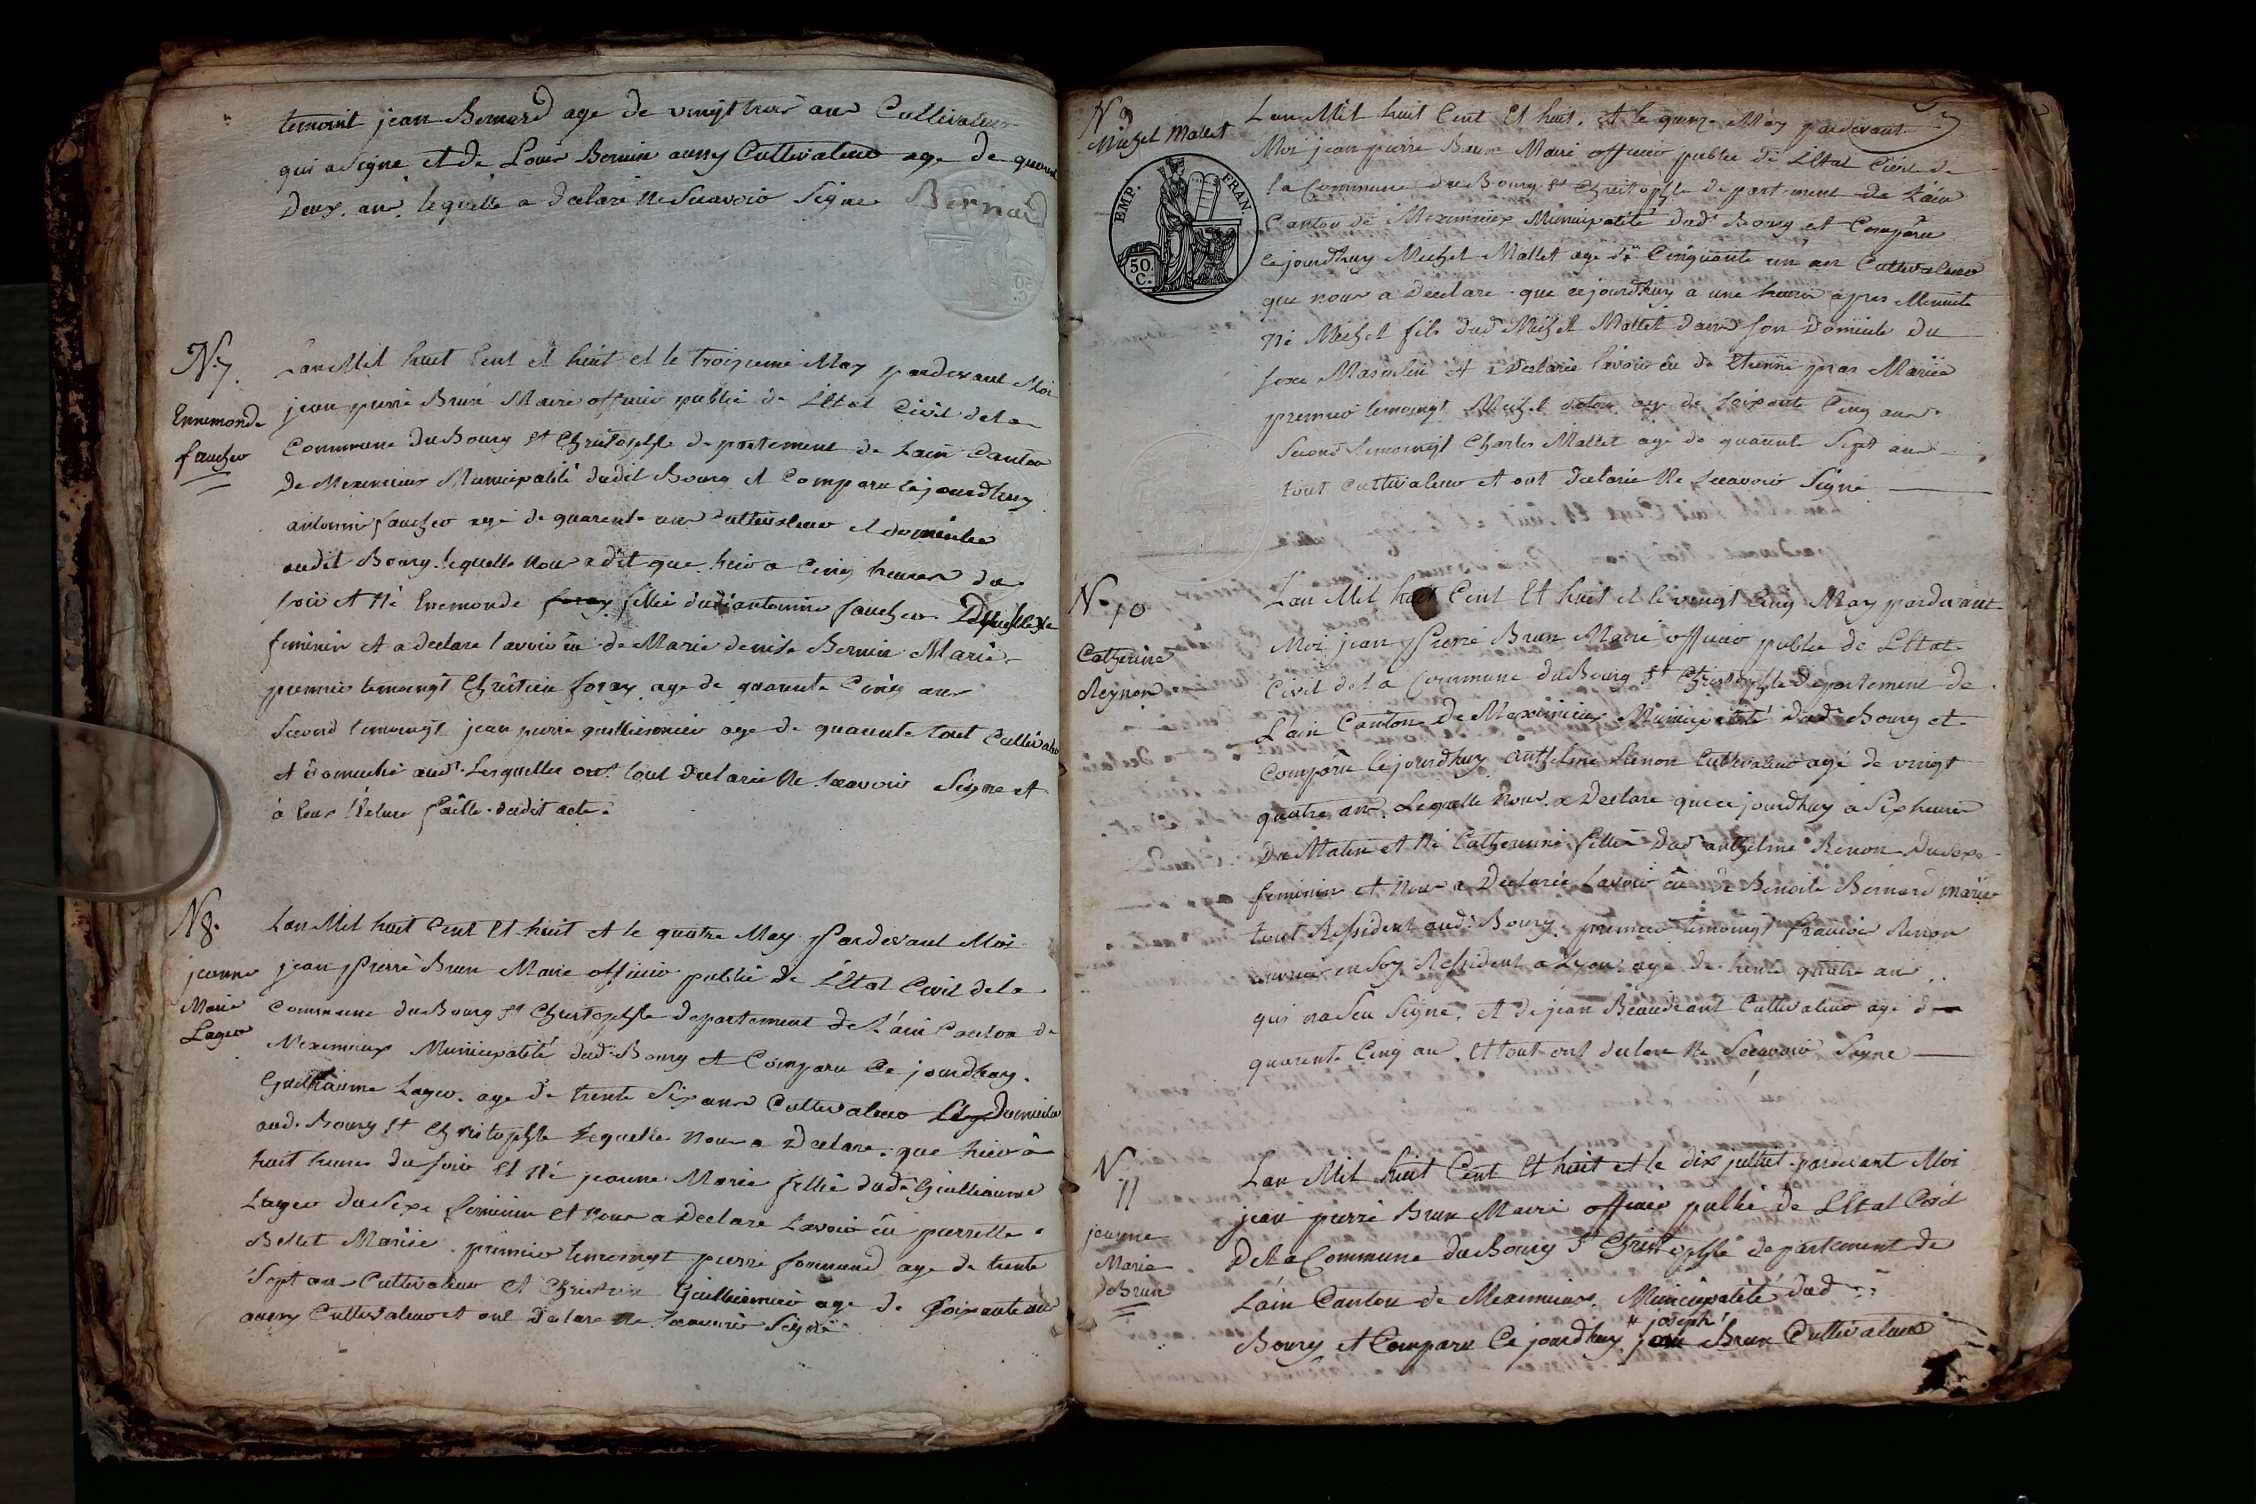 temoint jean Bernard age de vingt trois ans Cultivateur
qui a Signe et de Louis Bernin aussy Cultivateur age de quarente
Deux ans lequelle a declaré ne Scavoir Signe Bernard
N° 7.
Ennemonde
faucher
Lan Mil huit Cent et huit et le troizieme May pardevant Moi
jean pierre Brun Maire officier public de LEtat Civil dela
Commune du Bourg St Christophle departement de Lain Canton
De Meximieux Municipalité dudit Bourg et Comparu Cejourdhuy
antoinne faucher agé de quarente ans Cultivateur et domicilié
audit Bourg lequelle nous a dit que hier a Cinq heures du
soir et Né Enemonde foray fillie dud. antoinne faucher Du Sexe
feminin et a declaré lavoir eü de Marie denise Bernin Mariè
premier temoingt Chrêtien foray age de quarente Cinq ans
Second temoingt jean pierre guilliermier age de quarente tout Cultivateur
et domicilié aud. Lesquelles ont tout declarée Ne Scavoir Signe et
à leur lecture faitte dudit acte.
N 8.
jeanne
Marie
Lager
Lan Mil huit Cent Et huit et le quatre May Pardevant Moi
jean Pierre Brun Maire officier public de LEtat Civil dela
Commune du Bourg St Christophle departement de Lain Canton de
Meximieux Municipalité dud. Bourg et Comparu Ce jourdhuy
Guilliaume Lager age de trente Six ans Cultivateur Domicilié
aud. Bourg St Christophle Lequelle nous a Declare que hier à
huit heures du soir Et Né jeanne Marie fillie dud. Guilliaume
Lager du Sexe feminin Et nous a Declare Lavoir eü pierrette
Bellet Mariée premier temoingt pierre formand age de trente
Sept ans Cultivateur Et Christin Guilliermier age de Soixante ans
aussy Cultivateur et ont Declare ne Scavoir Signé
N 9
Michel Mallet
EMP. FRAN.
50. C.
Lan Mil huit Cent Et huit, et le quinze May pardevant
Moi jean pierre Brun Maire officier public de LEtat Civil de
la Commune du Bourg St Christophle departement de Lain
Canton de Meximieux Municipalité dud. Bourg et Comparu
Cejourdhuy Michel Mallet agé de Cinquante un an Cultivateur
que nous a Declare que cejourdhuy a une heure apres Minuit
Né Michel fils dud. Michel Mallet dans son Domicile du
sexe Masculin et a Declarée lavoir eü de Etienne pras Mariée
premier temoingt Michel age de soixante Cinq ans
Second temoingt Charles Mallet age de quarente Sept ans
tout Cultivateur et ont declarée Ne Scavoir Signé
N° 10
Catherine
Reynon
Lan Mil huit Cent Et huit et le vingt Cinq May pardevant
Moi jean Pierre Brun Maire officier public de LEtat
Civil dela Commune du Bourg St Christophle Departement de
Lain Canton de Meximieux Municipalité dud. Bourg et
Comparu Cejourdhuy anthelme Renon Cultivateur agé de vingt
quatre ans Lequelle nous a Declare que cejourdhuy a Six heures
Du Matin et Né Catherinne fille Dud. anthelme Renon Du Sexe
feminin et nous a Declarée Lavoir eü de Benoite Bernard mariée
tout Ressident aud. Bourg premier temoingt francois Renon
ouvrier en Soy Ressident a Lyon agé de trente quatre an
qui na Seu Signé, et de jean Beaudrant Cultivateur agé de
quarente Cinq an, Et tout ont declare Ne Scavoir Signe
N
11
jeanne
Marie
de Brun
Lan Mil huit Cent Et huit et le dix juillet pardevant Moi
jean pierre Brun Maire officier public de LEtat Civil
Dela Commune du Bourg St Christophle departement de
Lain Canton de Meximieux Municipalité dud.
joseph
Bourg et Comparu Ce jourdhuy jean Brun Cultivateur